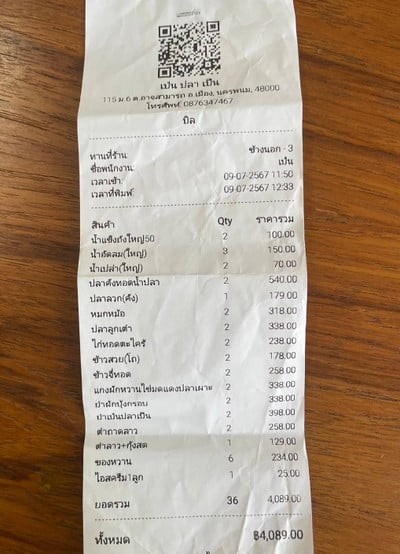 เป็น ปลา เป็น
115 ม.6 ต.อาจสามารถ อ.เมือง, นครพนม, 48000
โทรศัพท์: 0876347467
บิล
ทานที่ร้าน: ข้างนอก - 3
ชื่อพนักงาน: เป็น
เวลาเข้า: 09-07-2567 11:50
เวลาที่พิมพ์: 09-07-2567 12:33
สินค้า Qty ราคารวม
น้ำแข็งถังใหญ่50 2 100.00
น้ำอัดลม(ใหญ่) 3 150.00
น้ำเปล่า(ใหญ่) 2 70.00
ปลาคังทอดน้ำปลา 2 540.00
ปลาลวก(คัง) 1 179.00
หมกหม้อ 2 318.00
ปลาลูกเต๋า 2 338.00
ไก่ทอดตะไคร้ 2 238.00
ข้าวสวย(โถ) 2 178.00
ข้าวจี่ทอด 2 258.00
แกงผักหวานไข่มดแดงปลาเผาะ 2 338.00
ยำผักบุ้งกรอบ 2 338.00
ยำเป็นปลาเป็น 2 398.00
ตำถาดลาว 2 258.00
ตำลาว+กุ้งสด 1 129.00
ของหวาน 6 234.00
ไอสครีม1ลูก 1 25.00
ยอดรวม 36 4,089.00
ทั้งหมด ฿4,089.00